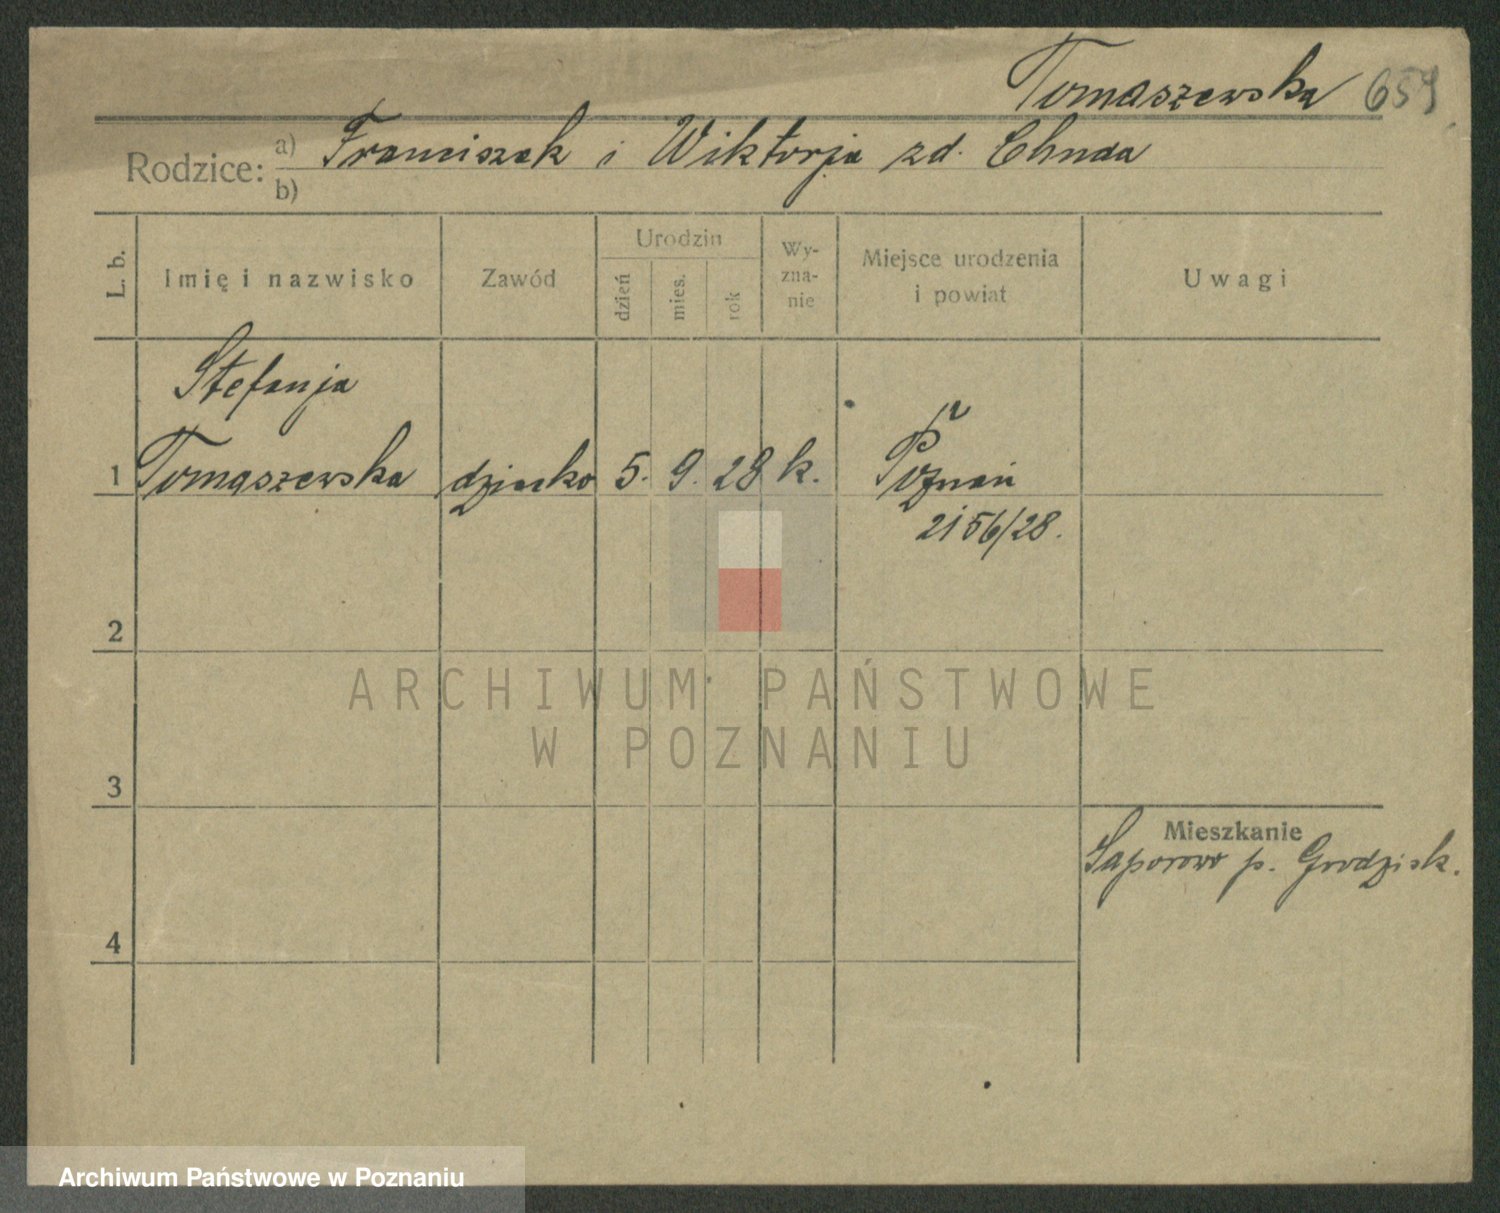 Tomaszewska 659
Rodzice: a) Franciszek i Wiktorja zd. Chuda
b)
L. b.
Imię i nazwisko
Zawód
Urodzin
dzień
mies.
rok
Wy-
zna-
nie
Miejsce urodzenia
i powiat
Uwagi
Stefanja
1 Tomaszewska dziecko 5. 9. 28 k. Poznań
2156/28.
2
3
Mieszkanie
Saporowo p. Grodzisk.
4
ARCHIWUM PAŃSTWOWE
W POZNANIU
Archiwum Państwowe w Poznaniu